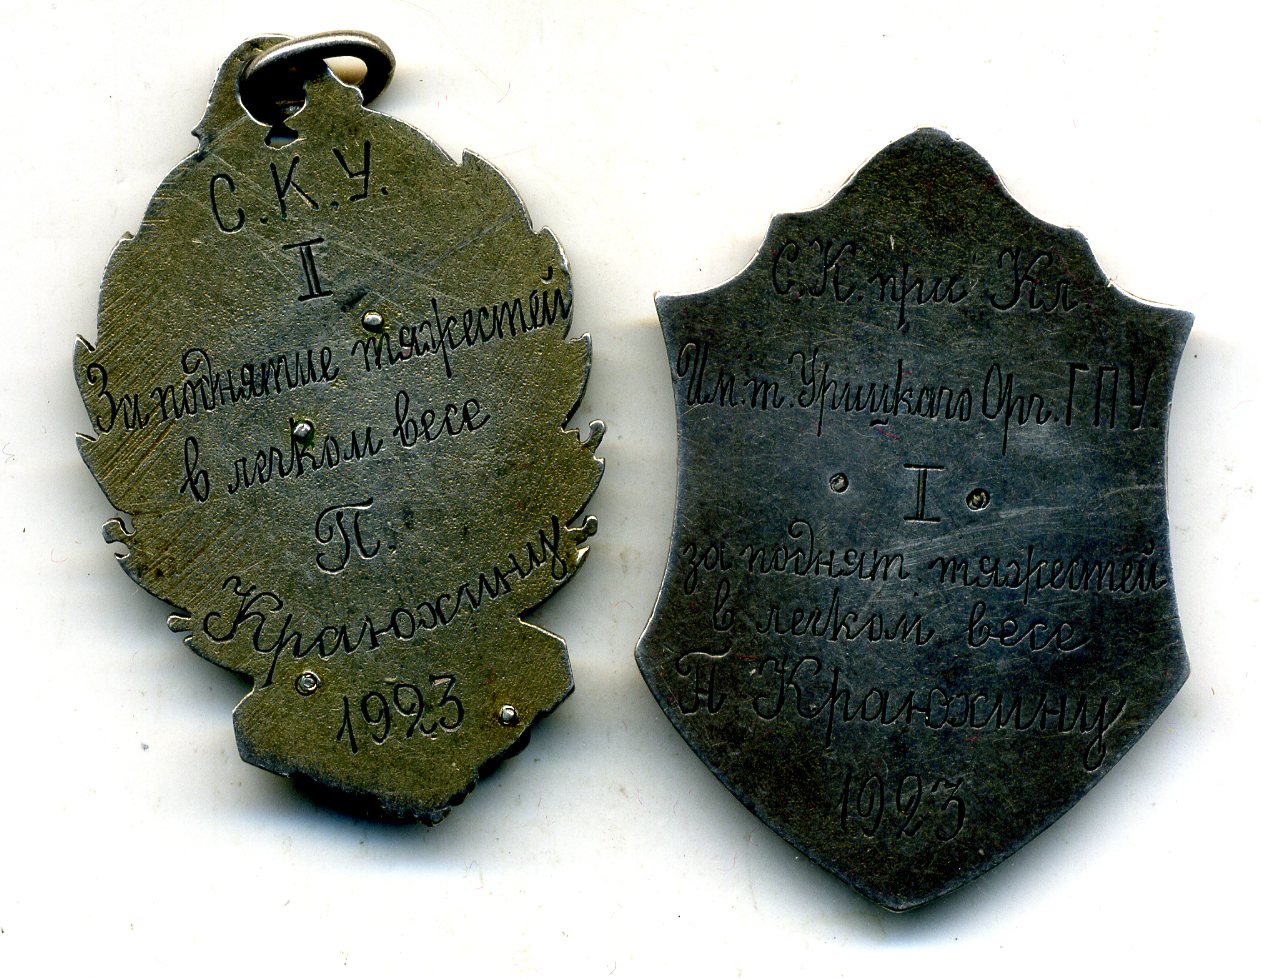 С.К.У.
II
За поднятие тяжестей
в легком весе
П.
Кранюхину
1923
С.К. при Кл.
Им. т. Урицкаго Орг. ГПУ.
I
за поднят. тяжестей
в легком весе
П Кранюхину
1923